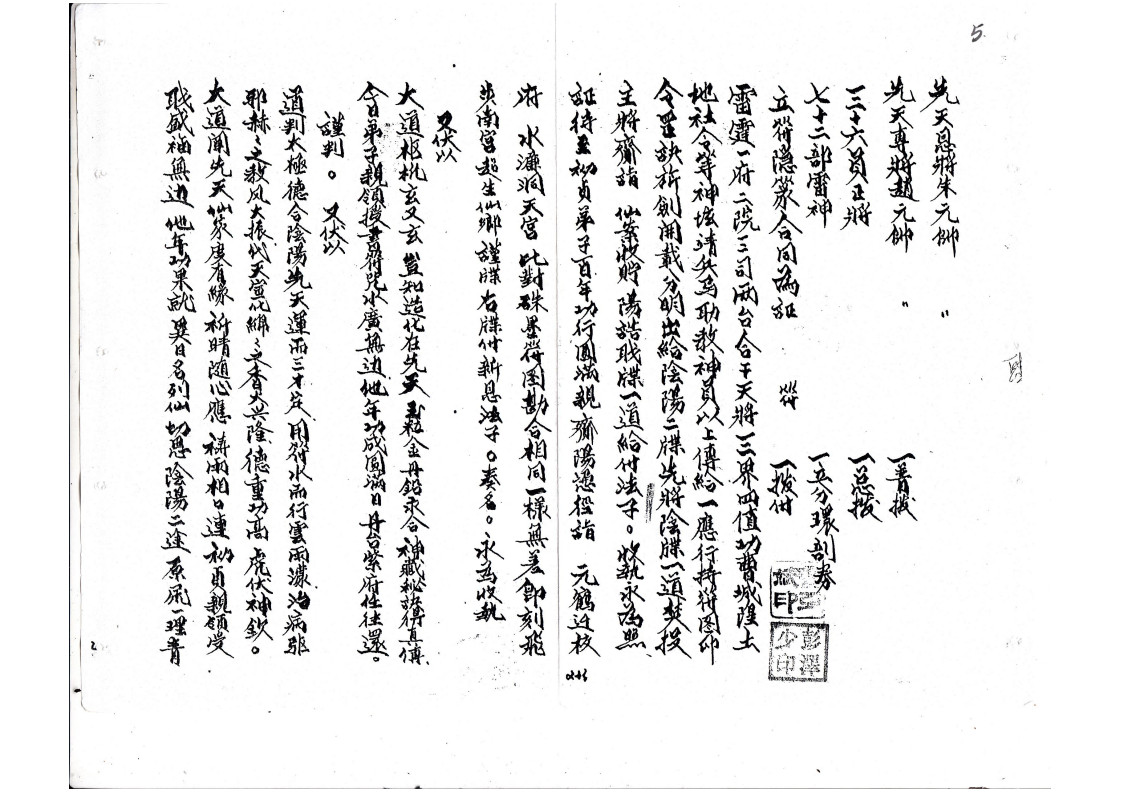 5.
先天恩將朱元帥 〃
先天專將趙元帥 〃 一菁拔
三十六員正將 一總拔
七十二部雷神 一立分環剖券
立符隱篆合同為証 符 一撥付
雷霆一府二院三司兩台合干天將三界四值功曹城隍土
地社令等神壇靖兵馬助教神員以上傳給一應行持符圖印
令罡訣析劍開載分明出給陰陽二牒先將陰牒一道焚投
主將齋詣 仙案收貯陽誥職牒一道給付法子。收執永為照
証待至初貞弟子百年功行圓滿親齎陽憑徑詣 元鶴迁校
府 水濂洞天宮 比對硃墨符图勘合相同一樣無差即刻飛
步南宮超生仙鄉 謹牒 右牒付新恩法子。奏名。永為收執
又伏以
大道枢机玄又玄 豈知造化在先天 玉粒金丹鉛汞合 神藏秘訣得真傳
今日弟子親領授 書符咒水廣無边 他年功成圓滿日 丹台紫府任往還。
謹判。 又伏以
道判太極德合陰陽先天運而三才定 用符水而行雲雨濛治病驱
邪赫〻之教风大振代天宣化綿〻之香火興隆德重功高虎伏神欽。
大道開先天 仙家度有緣 祈晴隨心應 禱雨相日連 初貞親領受
職威福無边 他年功果就 異日名列仙 切思陰陽二途原属一理菁
彭澤
少印
2